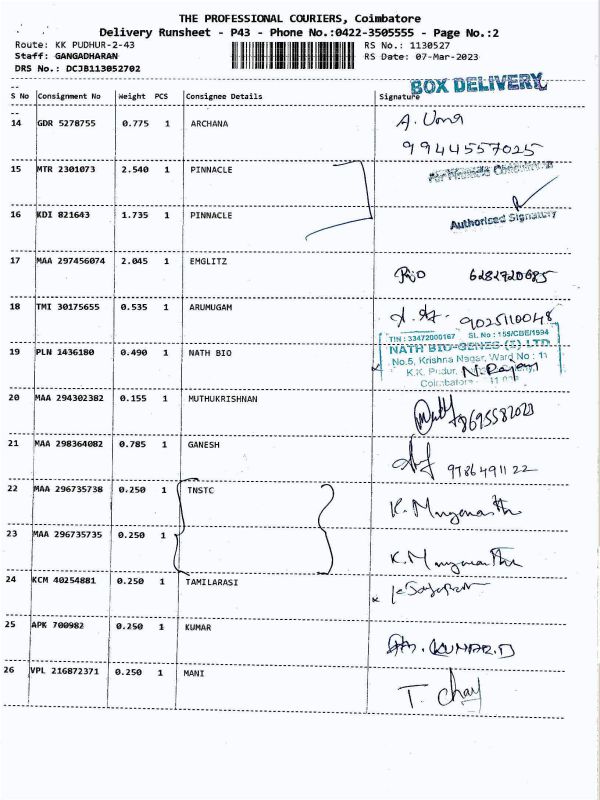 THE PROFESSIONAL COURIERS, Coimbatore
Delivery Runsheet - P43 - Phone No.:0422-3505555 - Page No.:2
Route: KK PUDHUR-2-43 RS No.: 1130527
Staff: GANGADHARAN RS Date: 07-Mar-2023
DRS No.: DCJB113052702
BOX DELIVERY
S No Consignment No Weight PCS Consignee Details Signature
14 GDR 5278755 0.775 1 ARCHANA A. Uma
9944557025
15 MTR 2301073 2.540 1 PINNACLE
16 KDI 821643 1.735 1 PINNACLE
Authorised Signatory
17 MAA 297456074 2.045 1 EMGLITZ 6282720685
18 TMI 30175655 0.535 1 ARUMUGAM 9025110048
TIN : 33472000167 SL No : 155/CBE/1994
19 PLN 1436180 0.490 1 NATH BIO NATH BIO-GENES (I) LTD
No.5, Krishna Nagar, Ward No : 11
K.K. Pudur, N. Rajan
Coimbatore
20 MAA 294302382 0.155 1 MUTHUKRISHNAN 8695582023
21 MAA 298364082 0.785 1 GANESH 9786491122
22 MAA 296735738 0.250 1 TNSTC
23 MAA 296735735 0.250 1
24 KCM 40254881 0.250 1 TAMILARASI
25 APK 700982 0.250 1 KUMAR KUMAR.D
26 VPL 216872371 0.250 1 MANI T. Chay